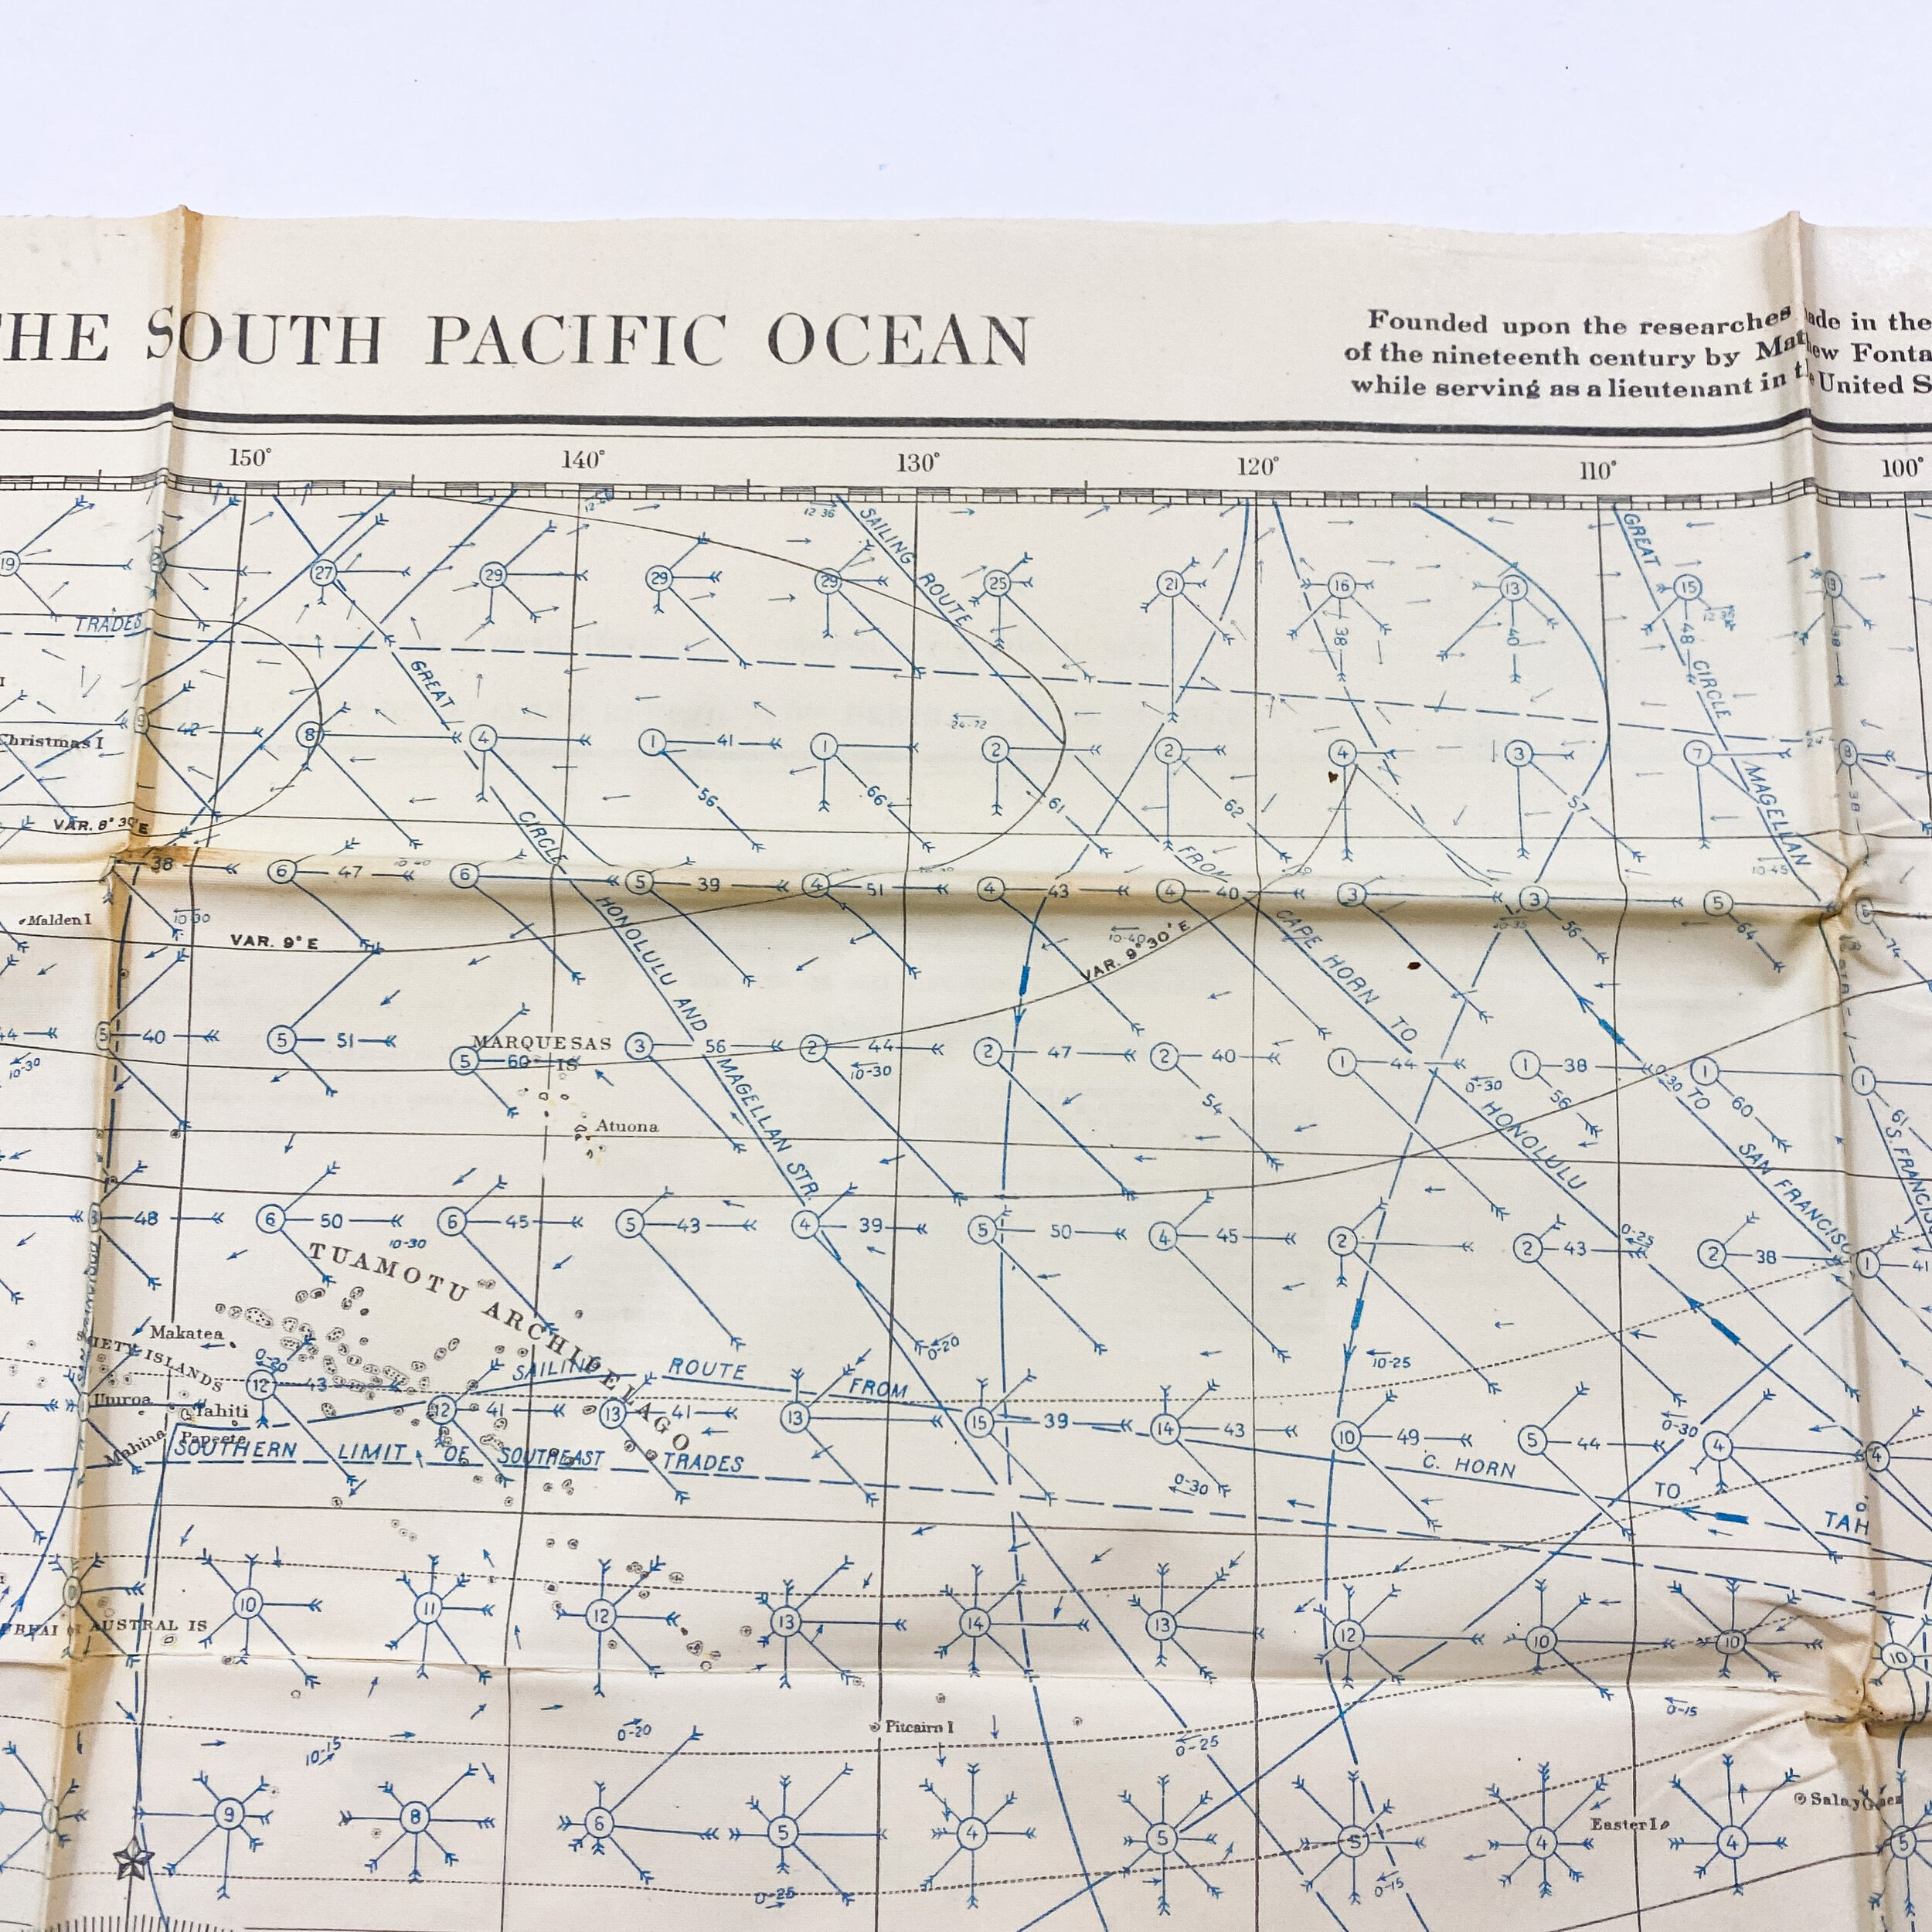 THE SOUTH PACIFIC OCEAN
Founded upon the researches made in the
of the nineteenth century by Matthew Fonta
while serving as a lieutenant in the United S
150° 140° 130° 120° 110° 100°
SAILING ROUTE
GREAT
19 27 29 29 29 25 21 16 13 15 13
38 40 48 38
TRADES
GREAT
CIRCLE
24-72
42 8 4 1 41 1 2 2 4 3 7 8
Christmas I
MAGELLAN
56 66 61 62 57 38
VAR. 8° 30' E
CIRCLE
FROM
10-45
38 6 47 6 5 39 4 51 4 43 4 40 3 3 5
Malden I
10-30
HONOLULU AND
CAPE HORN TO
56 64 74
VAR. 9° E
10-40
VAR. 9° 30' E
44 5 40 5 51 MARQUESAS 3 56 2 44 2 47 2 40 1 44 1 38 1 1
5 60 IS
10-30 10-30 0-30 0-30 TO
54 56 60 61
MAGELLAN STR.
HONOLULU
SAN FRANCISCO
S. FRANCISCO
Atuona
48 6 50 6 45 5 43 4 39 5 50 4 45 2 2 43 2 38 1 41
10-30
0-25
TUAMOTU ARCHIPELAGO
Makatea
IETY ISLANDS
0-20 0-20
10-25
SAILING ROUTE FROM
12 43 12 41 13 41 13 15 39 14 43 10 49 5 44 4 4
0-30
Tahiti
Papeete
Mahina
SOUTHERN LIMIT OF SOUTHEAST TRADES
C. HORN TO TAH
0-30
10 11 12 13 14 13 12 10 10 10
AUSTRAL IS
0-15
Pitcairn I
0-20
10-15
0-25
9 8 6 5 4 5 5 4 4 5
Easter I
Sala y Gomez
0-25
0-15